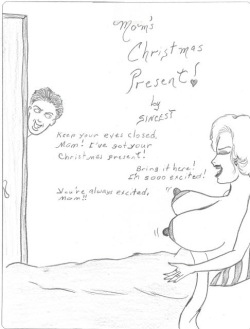 Mom's
Christmas
Present!
by
SINCEST
Keep your eyes closed,
Mom! I've got your
Christmas present!
Bring it here!
I'm sooo excited!
You're always excited,
mom!!